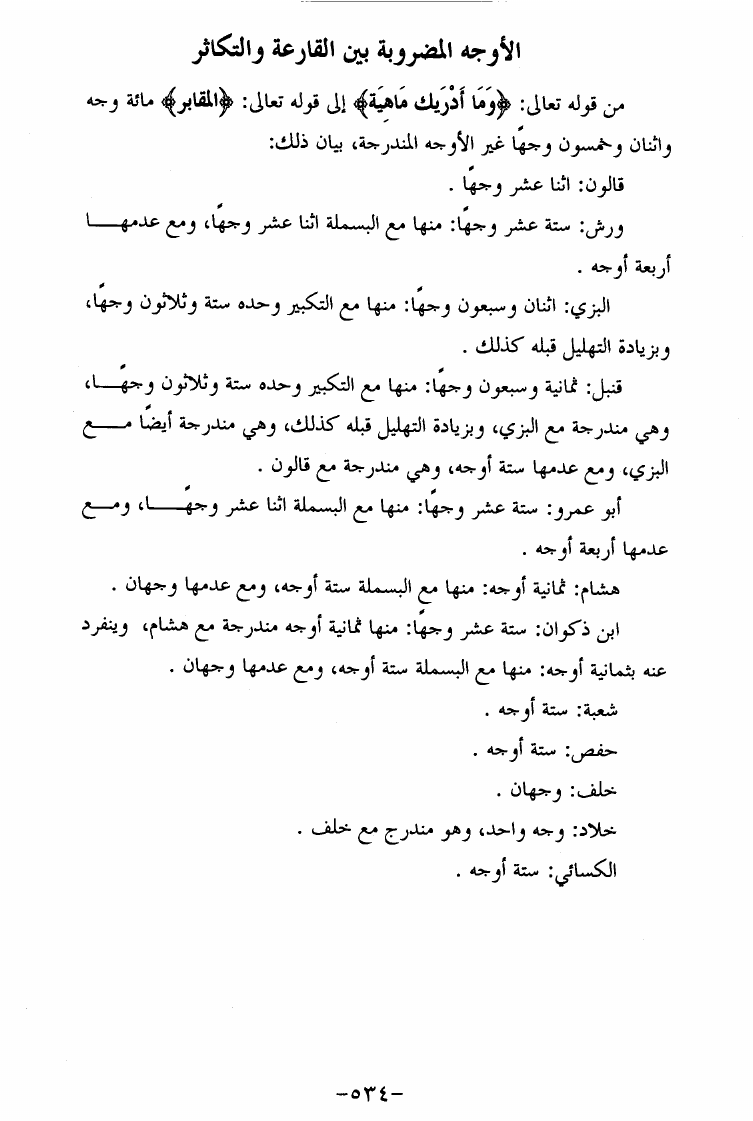 الأوجه المضروبة بين القارعة والتكاثر
من قوله تعالى: ﴿وَمَا أَدْرَيكَ مَاهِيَة﴾ إلى قوله تعالى: ﴿المقابر﴾ مائة وجه
واثنان وخمسون وجهًا غير الأوجه المندرجة، بيان ذلك:
قالون: اثنا عشر وجهًا .
ورش: ستة عشر وجهًا: منها مع البسملة اثنا عشر وجهًا، ومع عدمهـــا
أربعة أوجه .
البزي: اثنان وسبعون وجهًا: منها مع التكبير وحده ستة وثلاثون وجهًا،
وبزيادة التهليل قبله كذلك .
قنبل: ثمانية وسبعون وجهًا: منها مع التكبير وحده ستة وثلاثون وجهًـا،
وهي مندرجة مع البزي، وبزيادة التهليل قبله كذلك، وهي مندرجة أيضًا مـــع
البزي، ومع عدمها ستة أوجه، وهي مندرجة مع قالون .
أبو عمرو: ستة عشر وجهًا: منها مع البسملة اثنا عشر وجهًـــا، ومـــع
عدمها أربعة أوجه .
هشام: ثمانية أوجه: منها مع البسملة ستة أوجه، ومع عدمها وجهان .
ابن ذكوان: ستة عشر وجهًا: منها ثمانية أوجه مندرجة مع هشام، وينفرد
عنه بثمانية أوجه: منها مع البسملة ستة أوجه، ومع عدمها وجهان .
شعبة: ستة أوجه .
حفص: ستة أوجه .
خلف: وجهان .
خلاد: وجه واحد، وهو مندرج مع خلف .
الكسائي: ستة أوجه .
-٥٣٤-